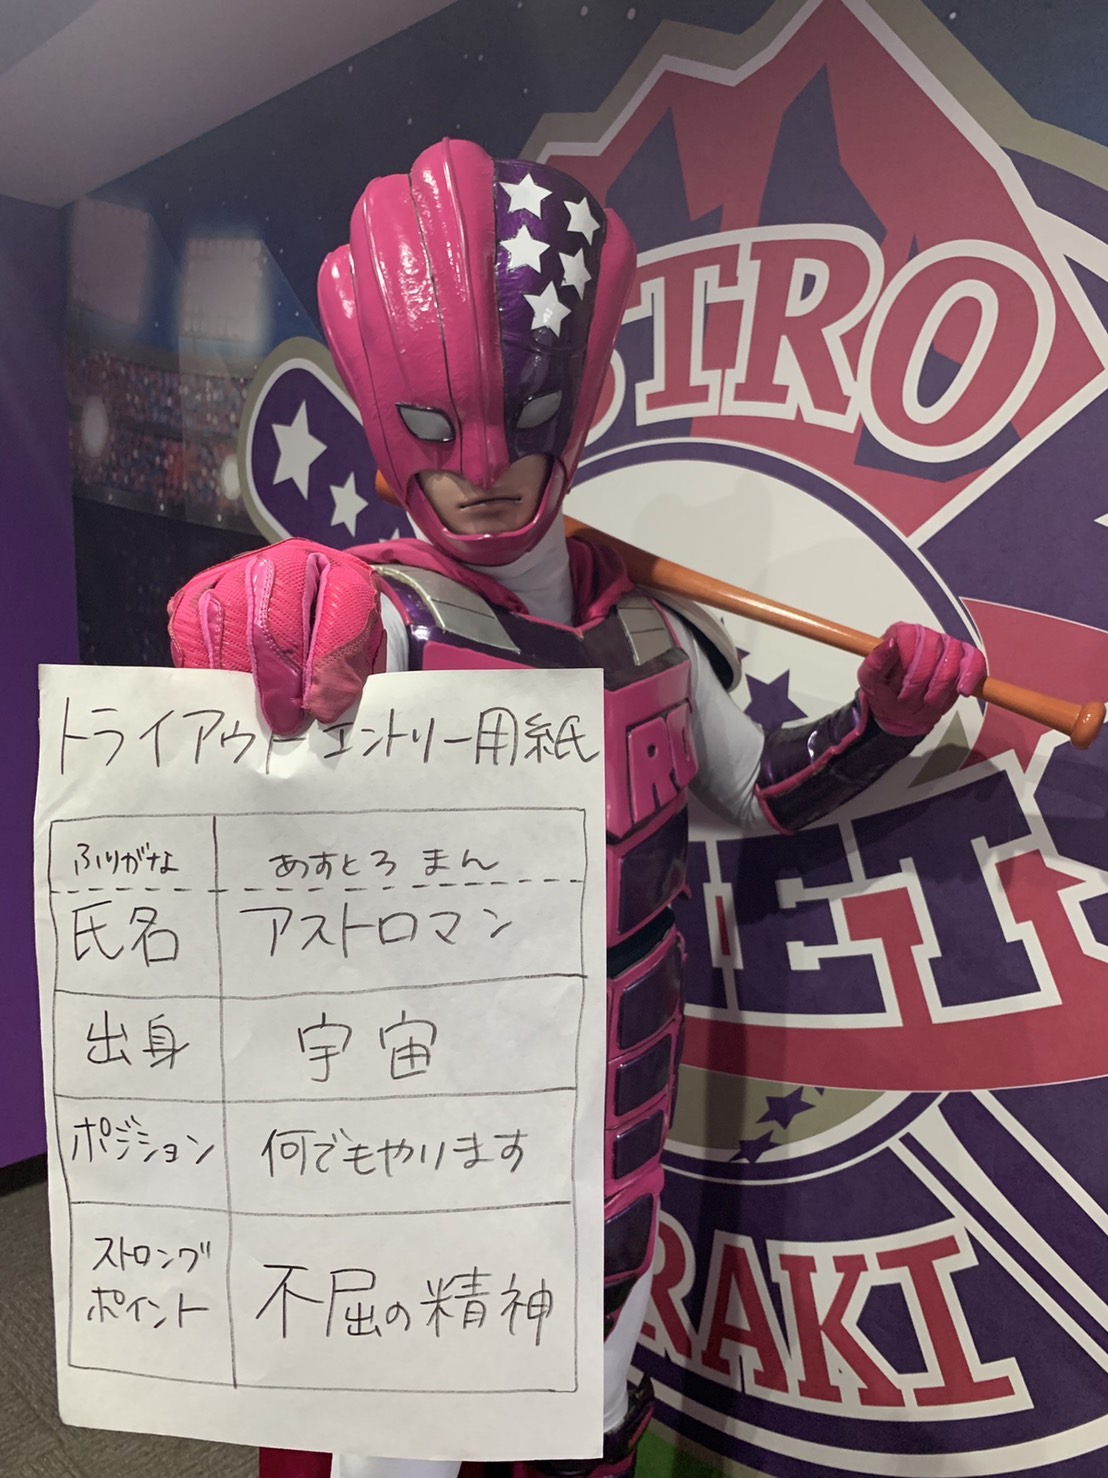 トライアウトエントリー用紙
ふりがな あすとろ まん
氏名 アストロマン
出身 宇宙
ポジション 何でもやります
ストロング
ポイント 不屈の精神
STRO
RO
ETS
RAKI